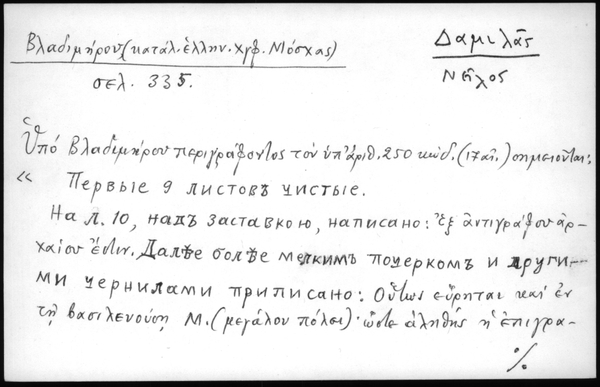 Βλαδιμήρου (κατάλ. ἑλλην. χγφ. Μόσχας)
σελ. 335.
Δαμιλᾶς
Νεῖλος
Ὑπό Βλαδιμήρου περιγράφοντος τὸν ὑπ' ἀριθ. 250 κώδ. (17 αἰ.) σημειοῦται:
« Первые 9 листовъ чистые.
На л. 10, надъ заставкою, написано: ἐξ ἀντιγράφου ἀρ-
χαίου ἐστιν. Далѣе болѣе мелкимъ почеркомъ и други-
ми чернилами приписано: Οὕτως εὕρηται καί ἐν
τῇ βασιλευούσῃ Μ. (μεγάλου πόλει) ὥστε ἀληθής ἡ ἐπιγρα-
%